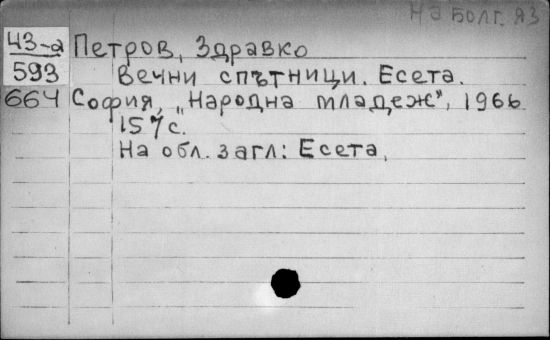 На Болг. яз
ЧЗ-а Петров, Здравко
593 Вечни спътници. Есета.
664 София, „Народна младеж”, 1966
157 с.
На обл. загл: Есета.